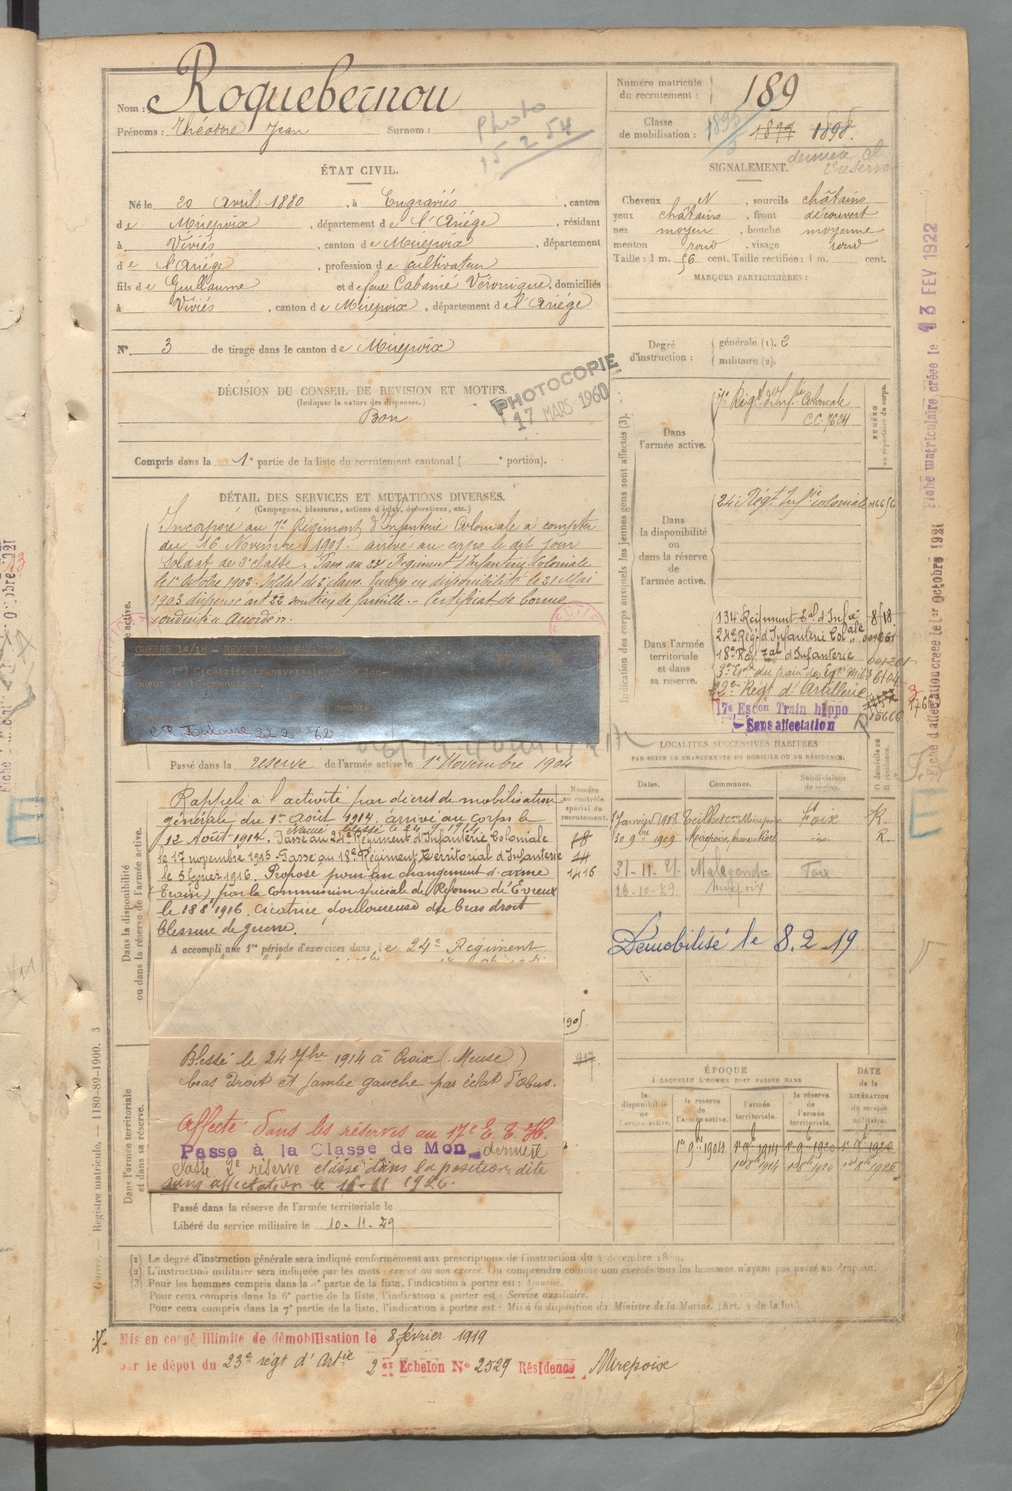 Nom : Roquebernou
Prénoms : Théodore Jean Surnom :
Photo
15 2 54
Numéro matricule du recrutement : 189
Classe de mobilisation : 1897 1898.
dernière cl
réserve
ÉTAT CIVIL.
Né le 20 avril 1880, à Engraviès, canton
de Mirepoix, département de l'Ariége, résidant
à Viviés, canton de Mirepoix, département
de l'Ariége, profession de cultivateur
fils de Guillaume et de feue Cabanié Véronique, domiciliés
à Viviés, canton de Mirepoix, département de l'Ariége
N° 3 de tirage dans le canton de Mirepoix
SIGNALEMENT.
Cheveux N, sourcils châtains
yeux châtains, front découvert
nez moyen, bouche moyenne
menton rond, visage rond
Taille : 1 m. 56 cent. Taille rectifiée : 1 m. cent.
MARQUES PARTICULIÈRES :
Degré d'instruction : générale (1). 2
militaire (2).
DÉCISION DU CONSEIL DE REVISION ET MOTIFS.
(Indiquer la nature des dispenses.)
Bon
PHOTOCOPIE
17 MARS 1960
Compris dans la 1e partie de la liste du recrutement cantonal ( e portion).
Indication des corps auxquels les jeunes gens sont affectés (3).
NUMÉRO au répertoire du corps.
Dans l'armée active.
7e Régt d'Infie Coloniale
CC. 7624
Dans la disponibilité ou dans la réserve de l'armée active.
24e Régt Infie coloniale
Dans l'armée territoriale et dans sa réserve.
134 Régiment tal d'Infie 8/18
24e Rég. d'Infanterie Colale
18e Rég tal d'Infanterie
3e Ern du train des Eqes Mil. 6104
22e Régt d'Artillerie
17e Escon Train hippo
Sans affectation
R 15666
1766
DÉTAIL DES SERVICES ET MUTATIONS DIVERSES.
(Campagnes, blessures, actions d'éclat, décorations, etc.)
Incorporé au 7e Régiment d'Infanterie Coloniale à compter
du 16 Novembre 1901. arrivé au corps le dit jour
soldat de 2e classe. Passé au 24 Régiment d'Infanterie Coloniale
le 1er Octobre 1902. Soldat de 2e classe. Envoyé en disponibilité le 31 Mai
1903 dispensé art 22 soutien de famille. - Certificat de bonne
conduite "Accordé".
GUERRE 14/18 - REVISION
1°) Cicatrice transversale
C R Toulouse 22 2 62
Passé dans la réserve de l'armée active le 1er Novembre 1904
Numéro au contrôle spécial du recrutement.
Dans la disponibilité ou dans la réserve de l'armée active.
Rappelé à l'activité par décret de mobilisation
générale du 1er août 1914. arrivé au corps le
12 août 1914. Passé au 24e Régiment d'Infanterie Coloniale
le 17 novembre 1915. Passé au 18e Régiment Territorial d'Infanterie
le 5 février 1916. Proposé pour un changement d'arme
(Train) par la Commission spéciale de Réforme d'Evreux
le 18 8 1916. Cicatrice douloureuse du bras droit
blessure de guerre.
18
14
1416
A accompli une 1re période d'exercices dans le 24e Régiment
1905.
917
Dans l'armée territoriale et dans sa réserve.
Blessé le 24 7bre 1914 à Croix (Meuse)
bras droit et jambe gauche par éclat d'obus.
Affecté dans les réserves au 17e E. T. H.
Passé à la Classe de Mon dernière
classe 2e réserve classé dans la position dite
sans affectation le 16-11 1926.
Passé dans la réserve de l'armée territoriale le
Libéré du service militaire le 10-11-29
LOCALITÉS SUCCESSIVES HABITÉES
PAR SUITE DE CHANGEMENTS DE DOMICILE OU DE RÉSIDENCE.
Dates. Communes. Subdivisions de région. D domicile ou R résidence.
Janvier 1908 Teilhet con Mirepoix Foix R.
30 9bre 1909 Mirepoix in. R.
31-11-21 Malegoude Foix
26-10-29 Mirepoix
Démobilisé le 8.2-19
ÉPOQUE
À LAQUELLE L'HOMME DOIT PASSER DANS
la disponibilité de l'armée active. la réserve de l'armée active. l'armée territoriale. la réserve de l'armée territoriale.
DATE de la LIBÉRATION du service militaire.
1er 9bre 1904 1er 9bre 1914 1er 9bre 1920 1er 9bre 1926
1er 8bre 1914 1er 8bre 1920 1er 8bre 1926
(1) Le degré d'instruction générale sera indiqué conformément aux prescriptions de l'instruction du 4 décembre 1889.
(2) L'instruction militaire sera indiquée par les mots : exercé ou non exercé. On comprendra comme non exercés tous les hommes n'ayant pas passé au drapeau.
(3) Pour les hommes compris dans la 4e partie de la liste, l'indication à porter est : Ajourné.
Pour ceux compris dans la 6e partie de la liste, l'indication à porter est : Service auxiliaire.
Pour ceux compris dans la 7e partie de la liste, l'indication à porter est : Mis à la disposition du Ministre de la Marine. (Art. 4 de la loi).
Mis en congé illimité de démobilisation le 8 février 1919
par le dépôt du 23e régt d'Artie 2er Echelon N° 2529 Résidence Mirepoix
Guerre. — Registre matricule. — 1180-89-1900. 3
Fiche matriculaire créée le 13 FEV 1922
Fiche d'affectation créée le 1er Octobre 1921
E
E